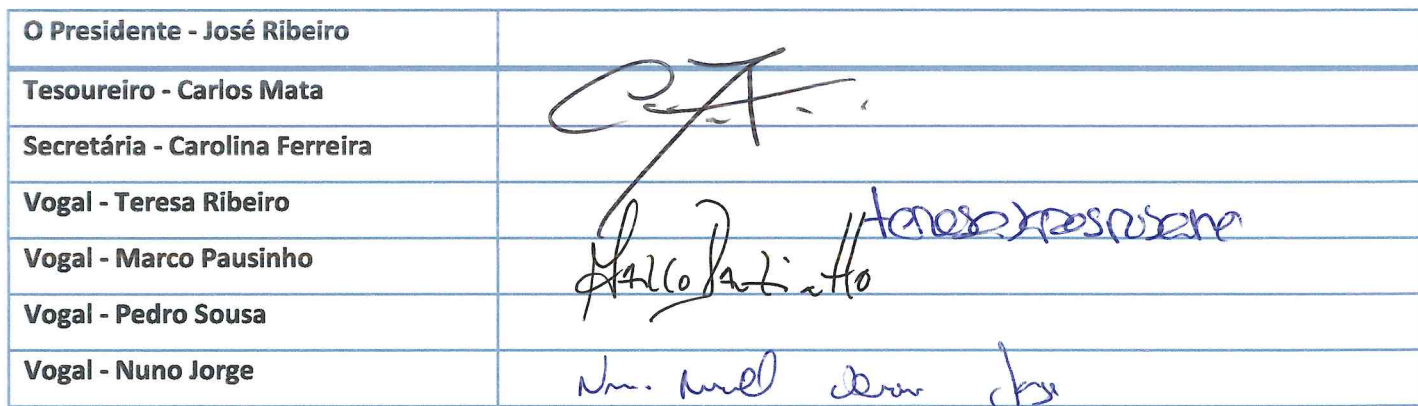 O Presidente - José Ribeiro
Tesoureiro - Carlos Mata
Secretária - Carolina Ferreira
Vogal - Teresa Ribeiro
Vogal - Marco Pausinho
Marco
Vogal - Pedro Sousa
Vogal - Nuno Jorge
Jorge